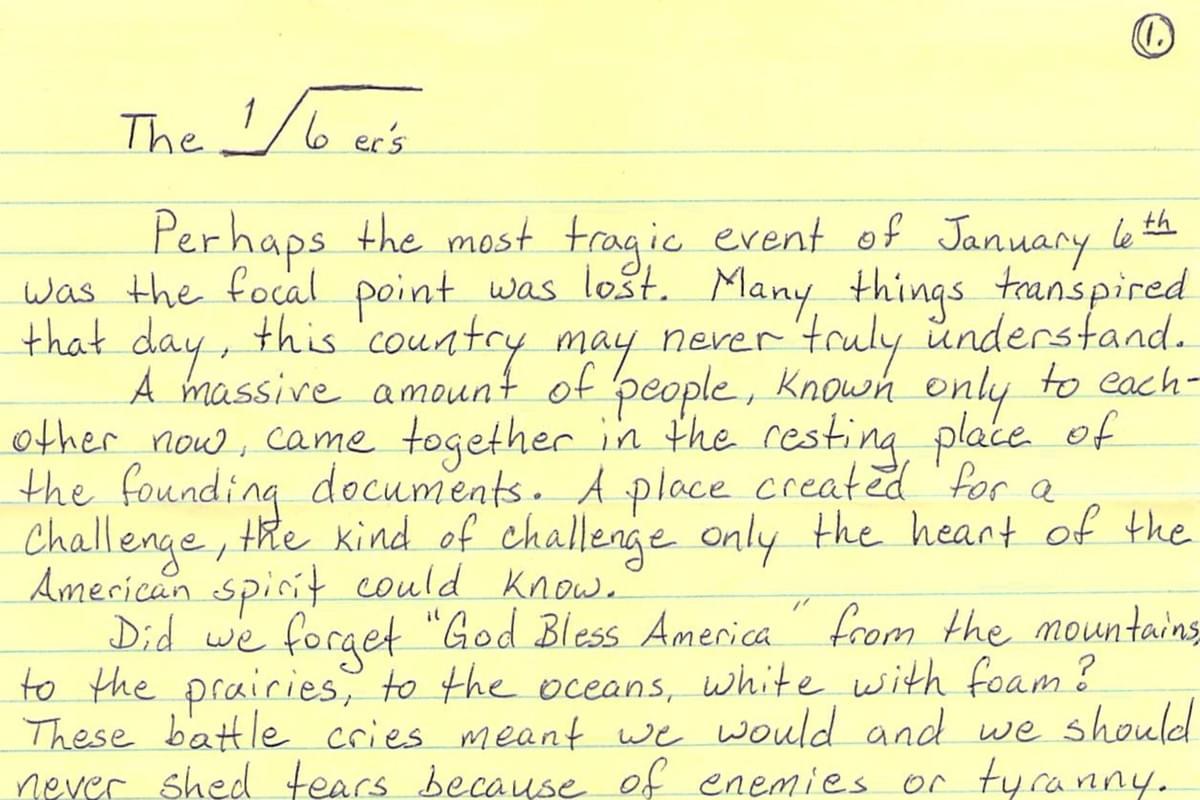 1.
The 1√6 er's
Perhaps the most tragic event of January 6th
was the focal point was lost. Many things transpired
that day, this country may never truly understand.
A massive amount of people, known only to each-
other now, came together in the resting place of
the founding documents. A place created for a
challenge, the kind of challenge only the heart of the
American spirit could know.
Did we forget "God Bless America" from the mountains,
to the prairies, to the oceans, white with foam?
These battle cries meant we would and we should
never shed tears because of enemies or tyranny.